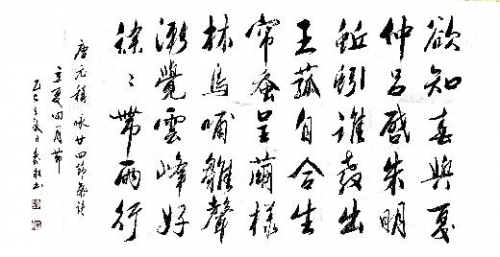 欲知春與夏
仲呂啟朱明
蚯蚓誰教出
王菰自合生
帘蚕呈繭樣
林鳥哺雛聲
漸覺雲峰好
徐〻帶雨行
唐元稹咏廿四節氣詩
立夏四月節
乙巳立夏日書